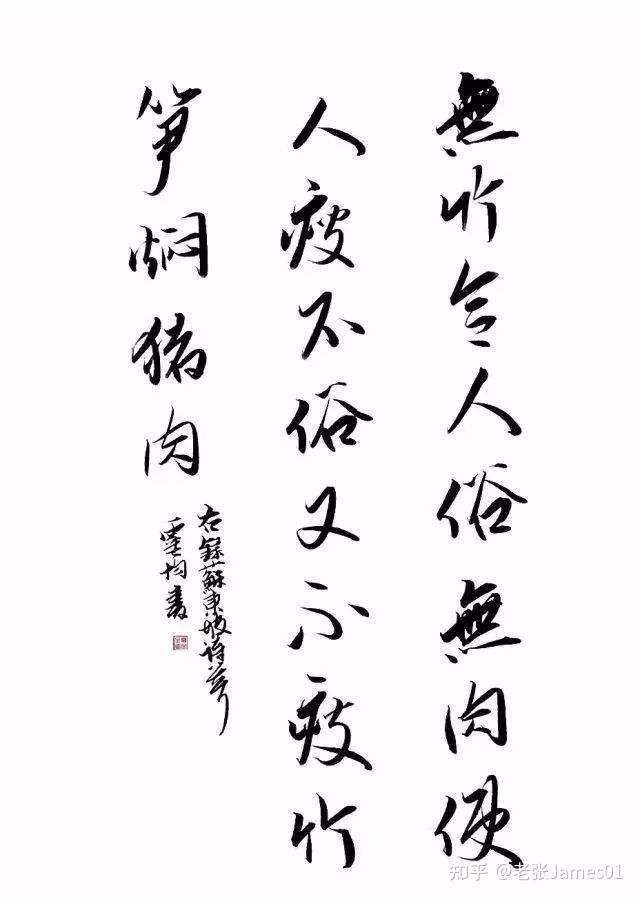 無竹令人俗無肉便
人瘦不俗又不瘦竹
笋焖猪肉
右錄蘇東坡詩
書
知乎 @老张James01